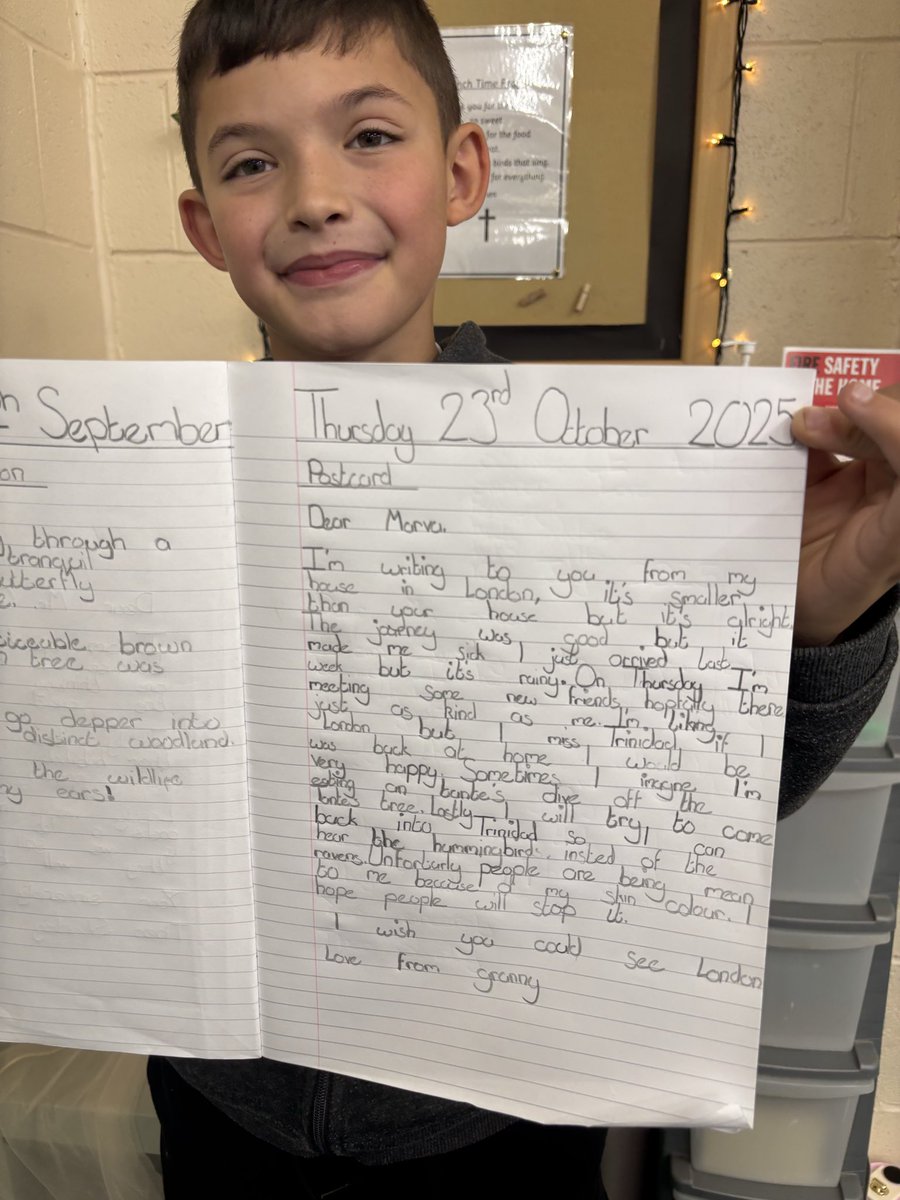 nch Time Pra
k you for th
so sweet
for the food
at.
birds that sing.
for everything
RE SAFETY
HE HOME
September
on
through a
tranquil
utterfly
e.
ticeable brown
tree was
go depper into
distinct woodland.
the wildlife
my ears!
Thursday 23rd October 2025
Postcard
Dear Marva.
I'm writing to you from my
house in London, it's smaller
than your house but it's alright.
The jouney was good but it
made me sick I just arrived last
week but it's rainy. On Thursday I'm
meeting some new friends, hoptally there
just as kind as me. I'm liking
London but I miss Trinidad, if I
was back at home I would be
very happy. Sometimes I imagine I'm
eating on tante's dive off the
tantes tree. Lastly I will try to come
back into Trinidad so I can
hear the hummingbirds, insted of the
ravens. Unforturly people are being mean
to me because of my skin colour. I
hope people will stop it.
I wish you could see London
Love from granny